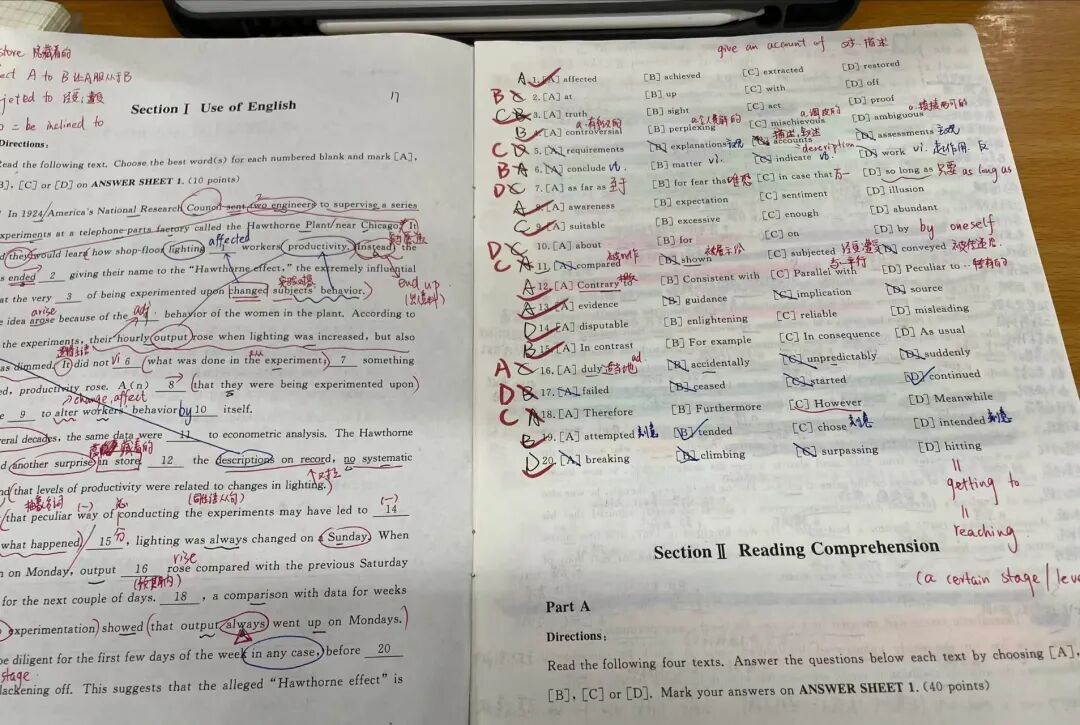 store 院藏着的
ect A to B 让A服从于B
jeted to 经受;遭受
o = be inclined to
Section Ⅰ Use of English
17
Directions:
Read the following text. Choose the best word(s) for each numbered blank and mark [A],
[B], [C] or [D] on ANSWER SHEET 1. (10 points)
In 1924 America's National Research Council sent two engineers to supervise a series
experiments at a telephone-parts factory called the Hawthorne Plant near Chicago. It
they would learn how shop-floor lighting affected workers productivity. Instead, the
s ended 2 giving their name to the "Hawthorne effect," the extremely influential
end up
at the very 3 of being experimented upon changed subjects' behavior.
arise adj
e idea arose because of the behavior of the women in the plant. According to
the experiments, their hourly output rose when lighting was increased, but also
as dimmed. It did not vi 6 what was done in the experiment; 7 something
ed, productivity rose. A(n) 8 that they were being experimented upon
change, affect
e 9 to alter workers' behavior by 10 itself.
eral decades, the same data were 11 to econometric analysis. The Hawthorne
another surprise in store 12 the descriptions on record, no systematic
nd that levels of productivity were related to changes in lighting.
抽象名词 (一) (同位语从句) (一)
that peculiar way of conducting the experiments may have led to 14
what happened. 15 , lighting was always changed on a Sunday. When
rise
n on Monday, output 16 rose compared with the previous Saturday
for the next couple of days. 18 , a comparison with data for weeks
experimentation) showed that output always went up on Mondays.
be diligent for the first few days of the week in any case, before 20
stage
lackening off. This suggests that the alleged "Hawthorne effect" is
give an account of 对··描述
A 1. [A] affected [B] achieved [C] extracted [D] restored
B 2. [A] at [B] up [C] with [D] off
C 3. [A] truth [B] sight [C] act [D] proof
B 4. [A] controversial [B] perplexing [C] mischievous [D] ambiguous
C 5. [A] requirements [B] explanations [C] accounts [D] assessments
描述,叙述 description
B 6. [A] conclude vt. [B] matter vi. [C] indicate vt. [D] work vi. 起作用
D 7. [A] as far as 至于 [B] for fear that 唯恐 [C] in case that 万一 [D] so long as 只要 as long as
A 8. [A] awareness [B] expectation [C] sentiment [D] illusion
C 9. [A] suitable [B] excessive [C] enough [D] abundant
D 10. [A] about [B] for [C] on [D] by by oneself
C 11. [A] compared [B] shown [C] subjected 经受遭受 [D] conveyed
A 12. [A] Contrary to [B] Consistent with [C] Parallel with [D] Peculiar to ·· 特有的
A 13. [A] evidence [B] guidance [C] implication [D] source
D 14. [A] disputable [B] enlightening [C] reliable [D] misleading
B 15. [A] In contrast [B] For example [C] In consequence [D] As usual
A 16. [A] duly 适当地 ad. [B] accidentally [C] unpredictably [D] suddenly
D 17. [A] failed [B] ceased [C] started [D] continued
C 18. [A] Therefore [B] Furthermore [C] However [D] Meanwhile
B 19. [A] attempted 刻意 [B] tended [C] chose 刻意 [D] intended 刻意
D 20. [A] breaking [B] climbing [C] surpassing [D] hitting
=
getting to
=
reaching
(a certain stage/leve
Section Ⅱ Reading Comprehension
Part A
Directions:
Read the following four texts. Answer the questions below each text by choosing [A],
[B], [C] or [D]. Mark your answers on ANSWER SHEET 1. (40 points)